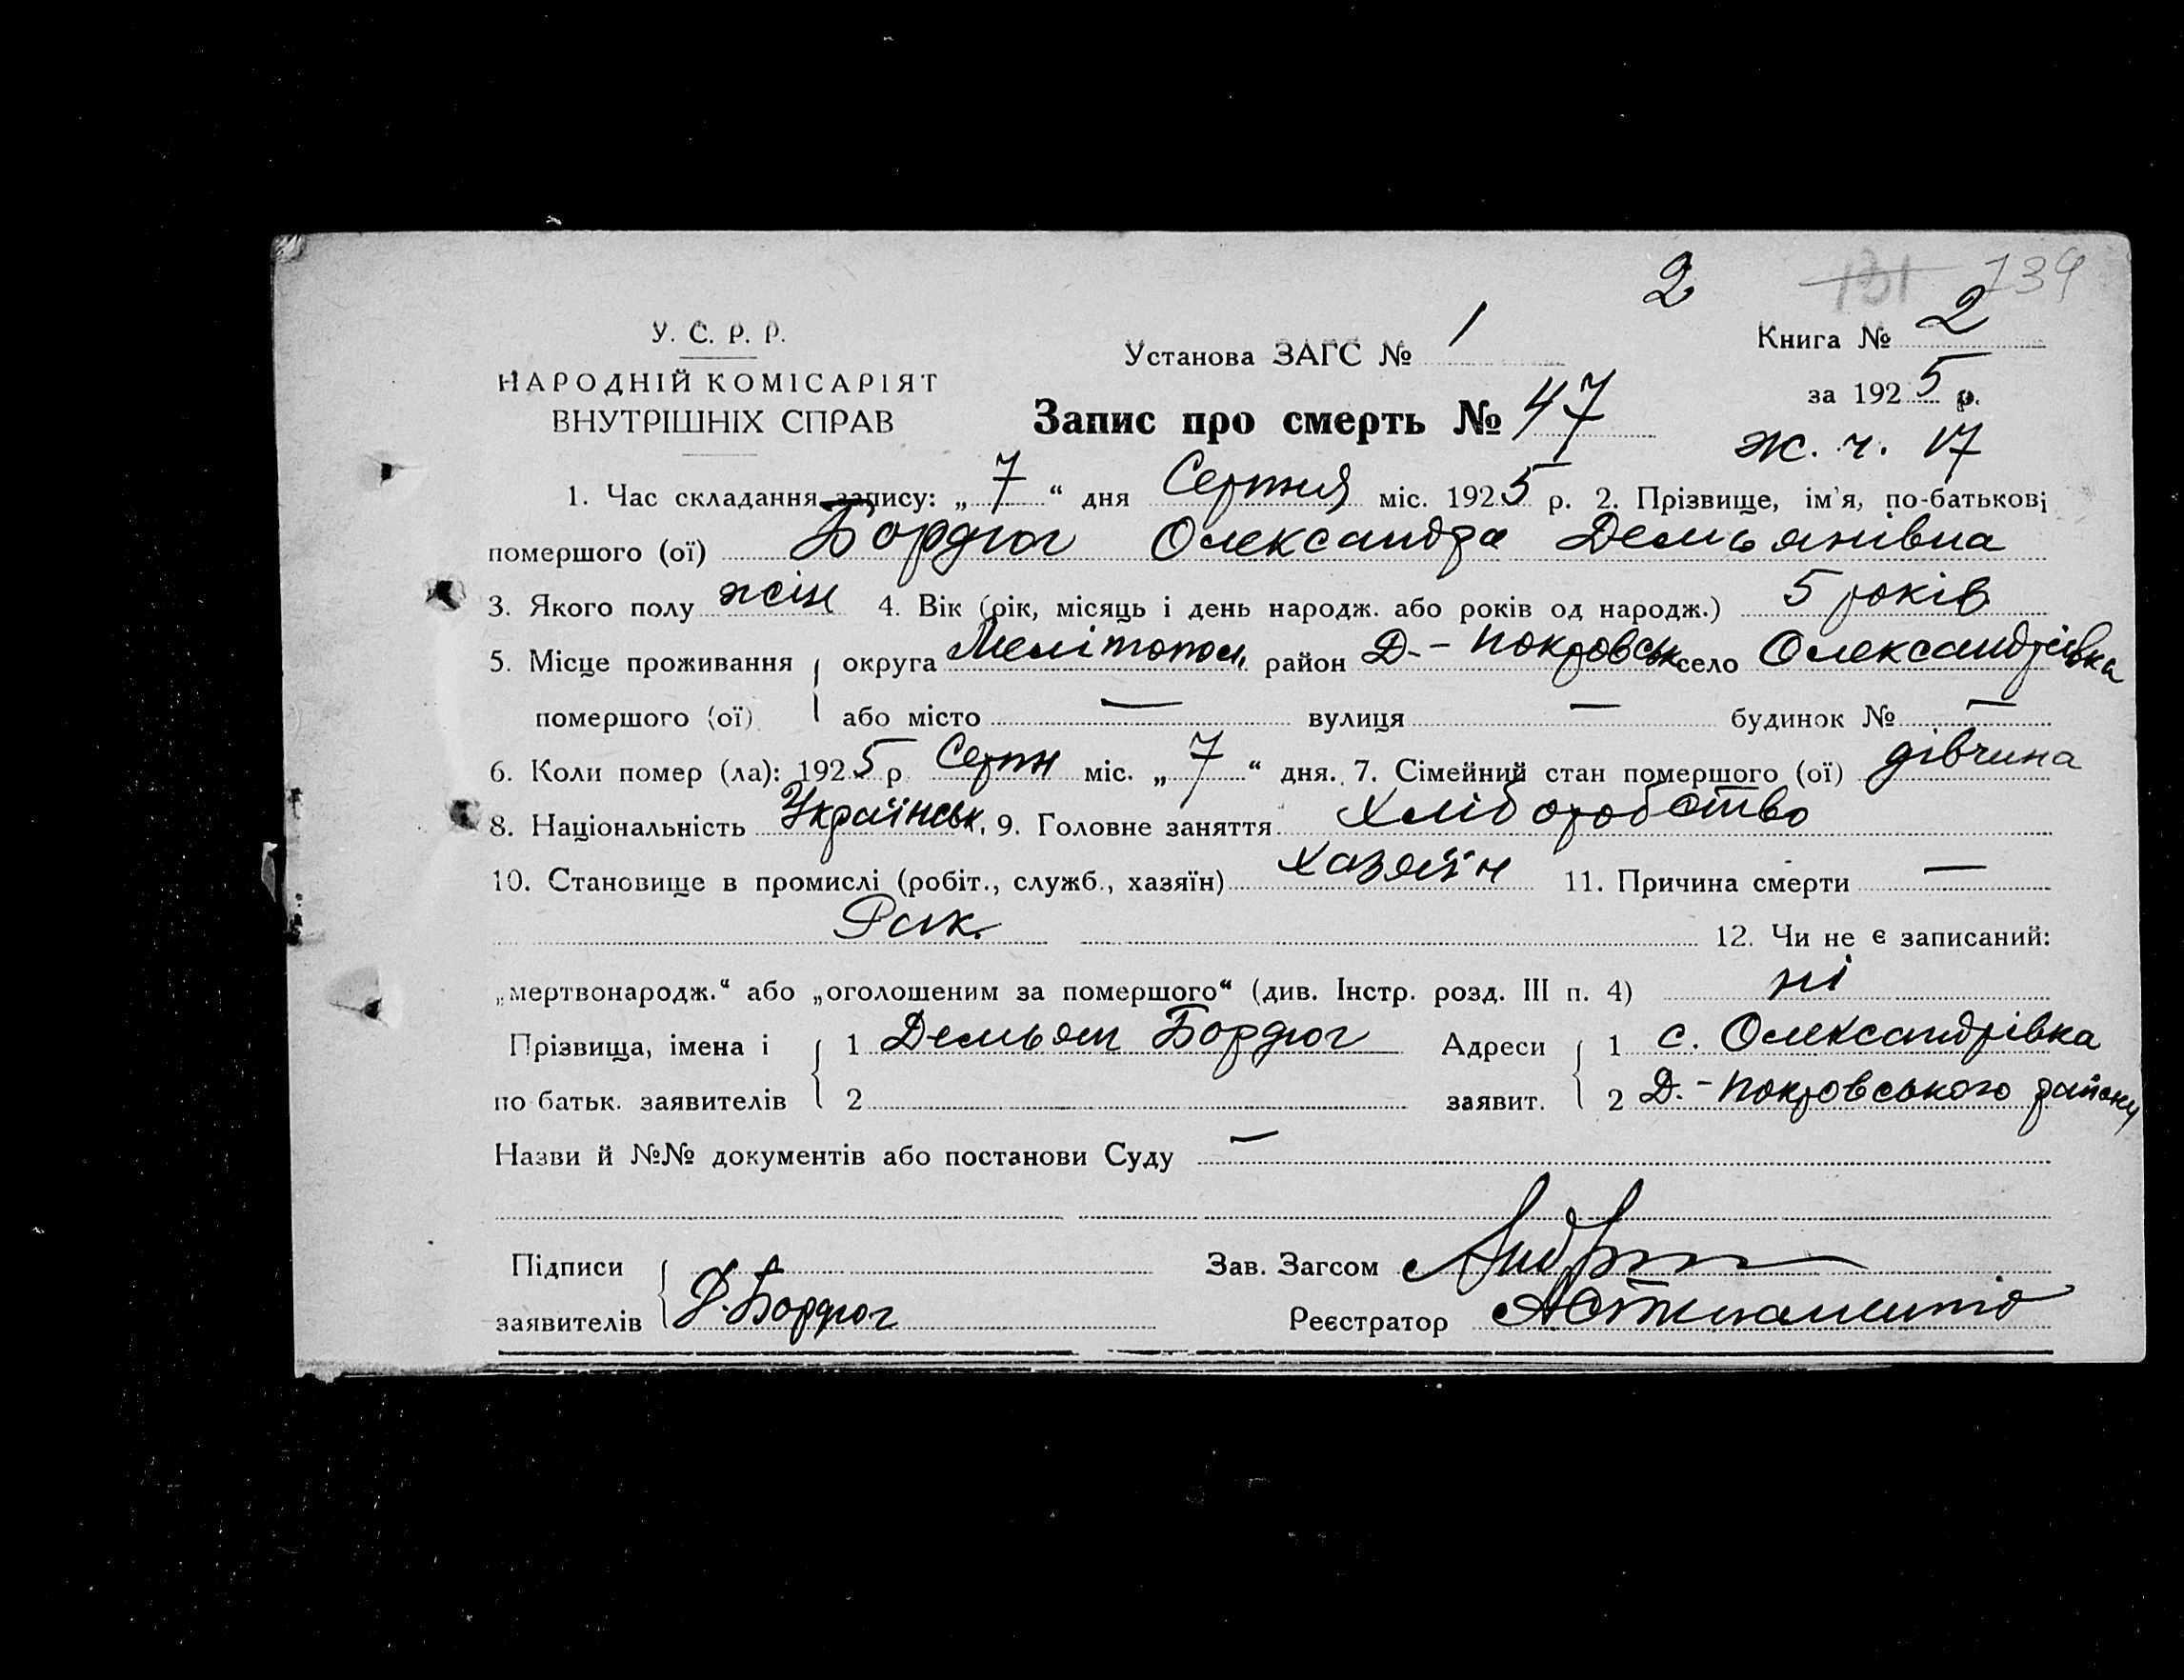 2 131 139
У. С. Р. Р.
НАРОДНІЙ КОМІСАРІЯТ
ВНУТРІШНІХ СПРАВ
Установа ЗАГС № 1
Книга № 2
за 1925 р.
Запис про смерть № 47
ж. ч. 17
1. Час складання запису: „ 7 “ дня Серпня міс. 1925 р. 2. Прізвище, ім'я, по-батькові
помершого (ої) Бордюг Олександра Демьянівна
3. Якого полу жін 4. Вік (рік, місяць і день народж. або років од народж.) 5 років
5. Місце проживання округа Мелітопол. район Д.-Покровськ село Олександрівка
помершого (ої) або місто — вулиця — будинок № —
6. Коли помер (ла): 1925 р Серпн міс. „ 7 “ дня. 7. Сімейний стан помершого (ої) дівчина
8. Національність Українськ. 9. Головне заняття Хліборобство
10. Становище в промислі (робіт., служб., хазяїн) Хазяїн 11. Причина смерти —
Рак. 12. Чи не є записаний:
„мертвонародж.“ або „оголошеним за помершого“ (див. Інстр. розд. III п. 4) ні
Прізвища, імена і 1 Демьян Бордюг Адреси 1 с. Олександрівка
по батьк. заявителів 2 заявит. 2 Д.-Покровського району
Назви й №№ документів або постанови Суду —
Підписи Зав. Загсом
заявителів Д. Бордюг Реєстратор